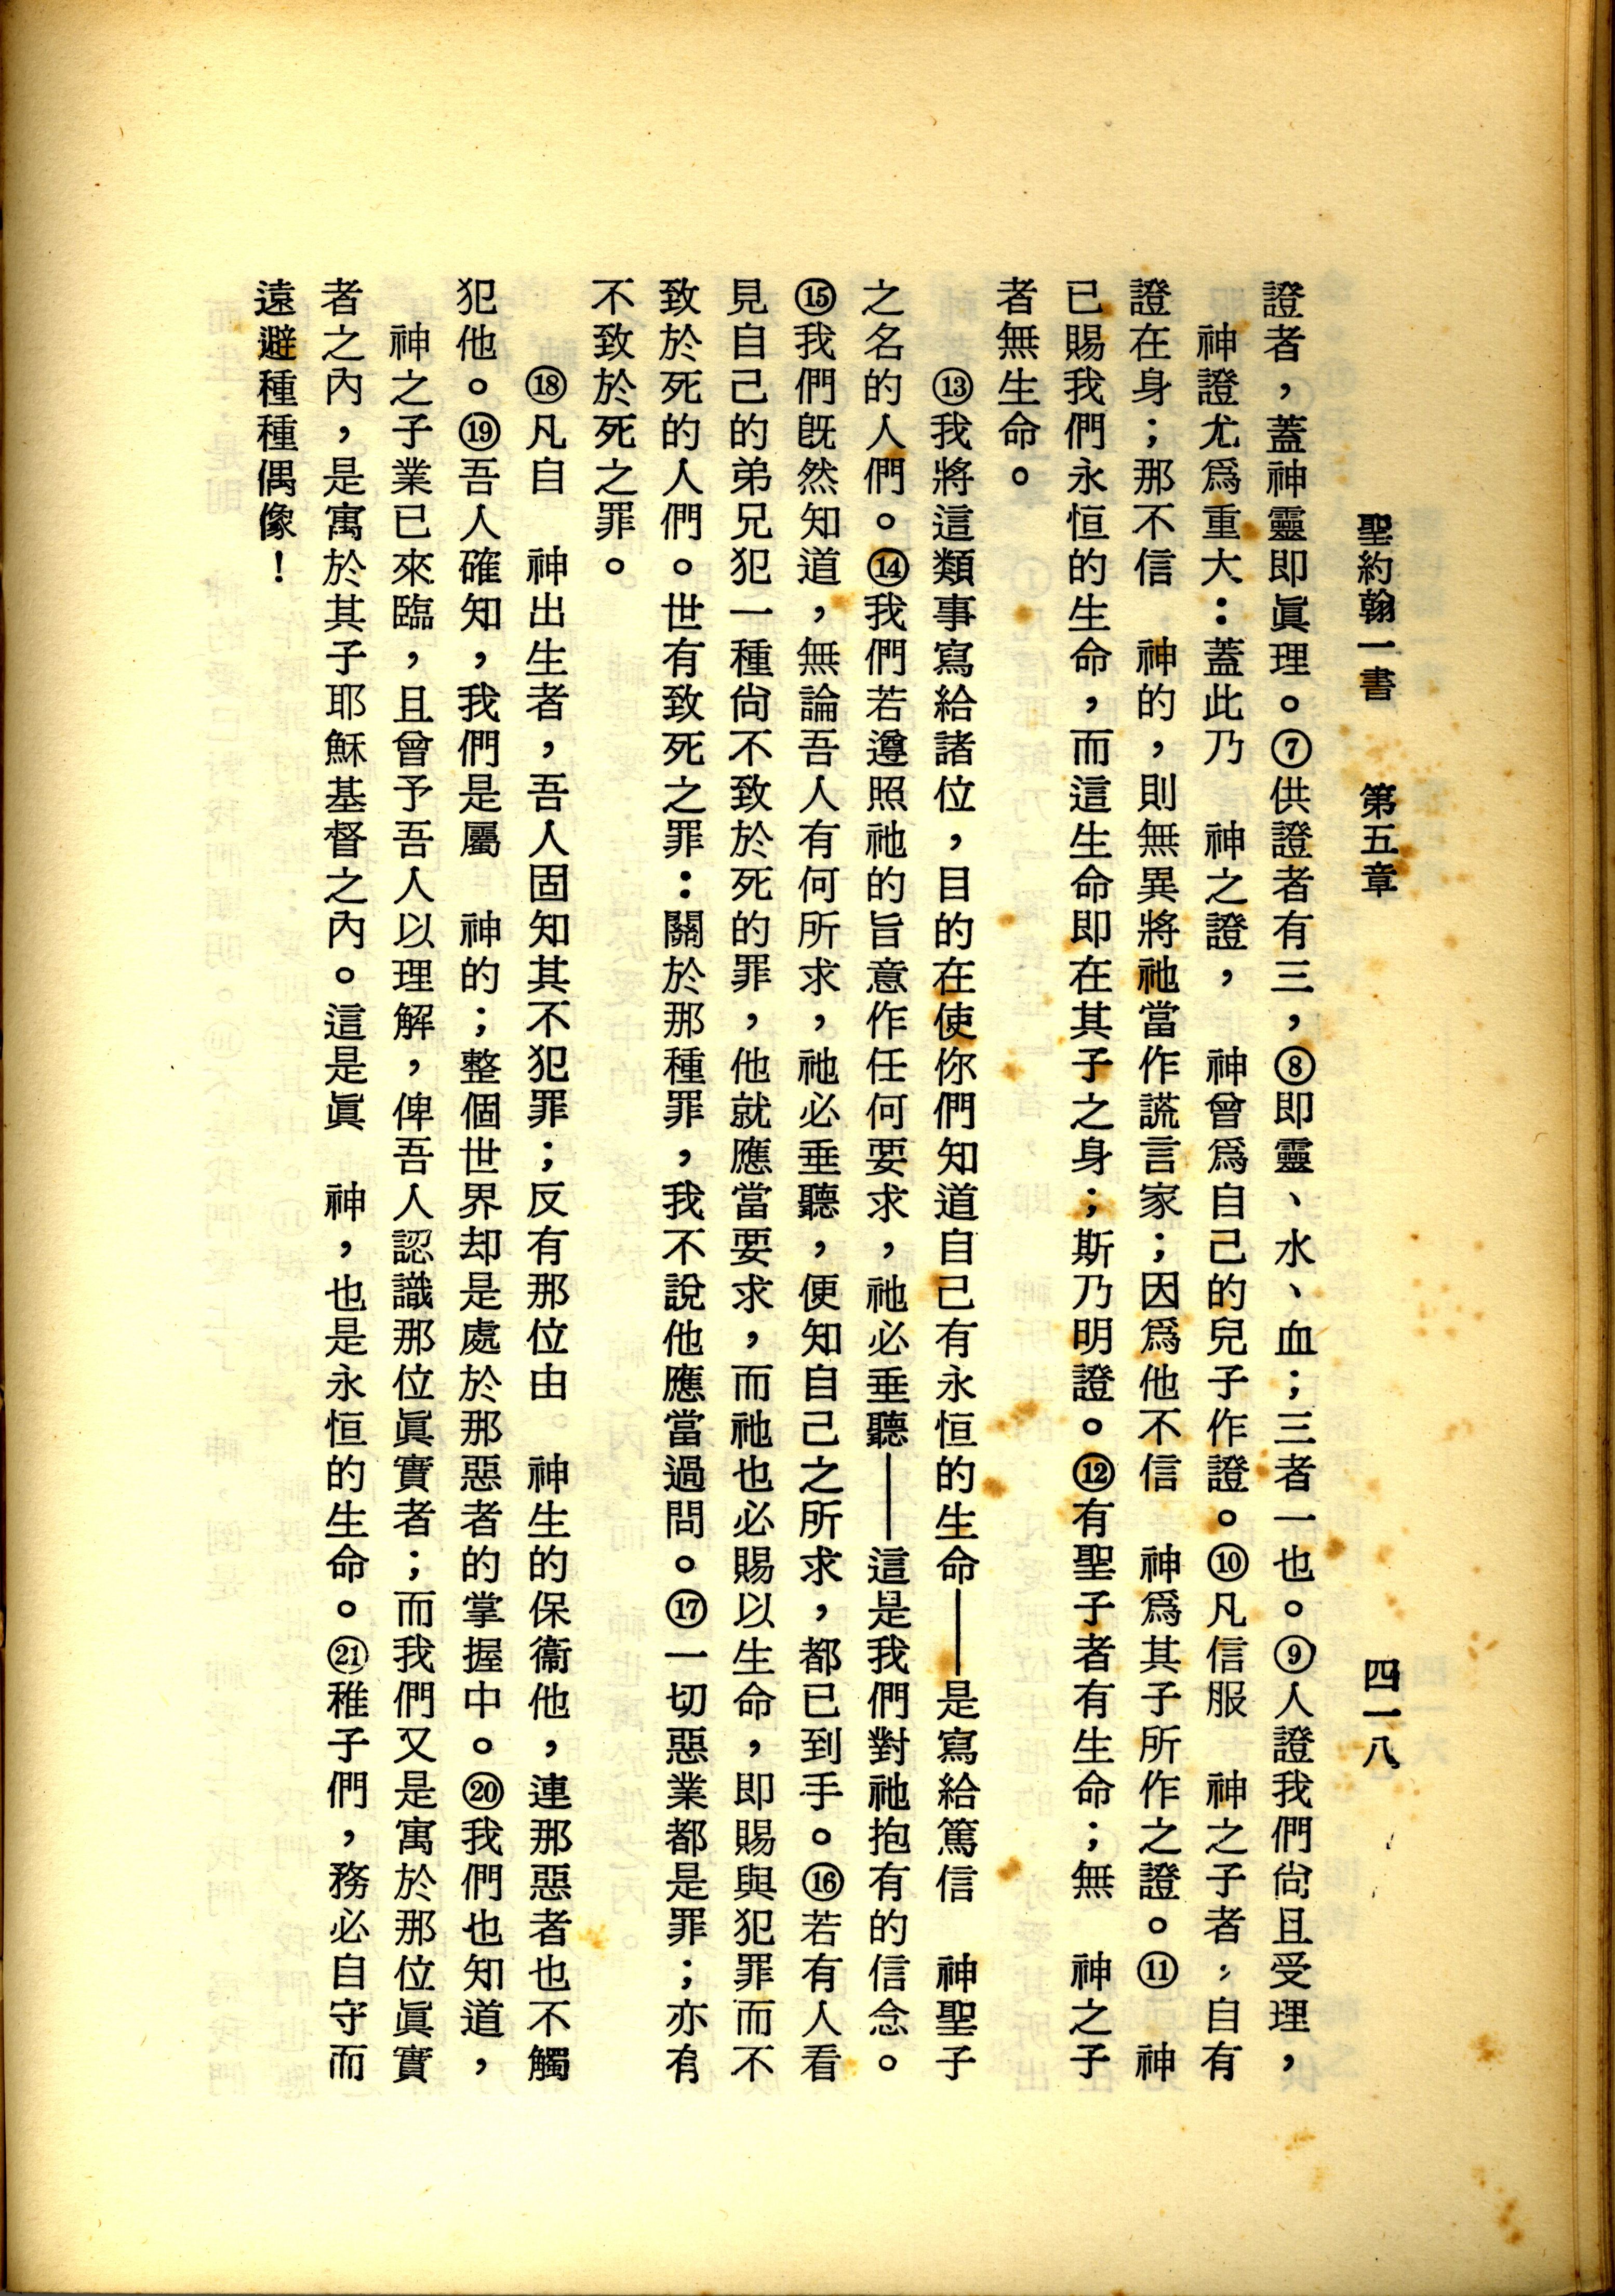 聖約翰一書　第五章　四一八
證者，蓋神靈即眞理。⑦供證者有三，⑧即靈、水、血；三者一也。⑨人證我們尙且受理，
　神證尤爲重大：蓋此乃　神之證，　神曾爲自己的兒子作證。⑩凡信服　神之子者，自有
證在身；那不信　神的，則無異將祂當作謊言家；因爲他不信　神爲其子所作之證。⑪　神
已賜我們永恒的生命，而這生命即在其子之身；斯乃明證。⑫有聖子者有生命；無　神之子
者無生命。
　　⑬我將這類事寫給諸位，目的在使你們知道自己有永恒的生命——是寫給篤信　神聖子
之名的人們。⑭我們若遵照祂的旨意作任何要求，祂必垂聽——這是我們對祂抱有的信念。
⑮我們旣然知道，無論吾人有何所求，祂必垂聽，便知自己之所求，都已到手。⑯若有人看
見自己的弟兄犯一種尙不致於死的罪，他就應當要求，而祂也必賜以生命，即賜與犯罪而不
致於死的人們。世有致死之罪：關於那種罪，我不說他應當過問。⑰一切惡業都是罪；亦有
不致於死之罪。
　　⑱凡自　神出生者，吾人固知其不犯罪；反有那位由　神生的保衞他，連那惡者也不觸
犯他。⑲吾人確知，我們是屬　神的；整個世界却是處於那惡者的掌握中。⑳我們也知道，
　神之子業已來臨，且曾予吾人以理解，俾吾人認識那位眞實者；而我們又是寓於那位眞實
者之內，是寓於其子耶穌基督之內。這是眞　神，也是永恒的生命。㉑稚子們，務必自守而
遠避種種偶像！